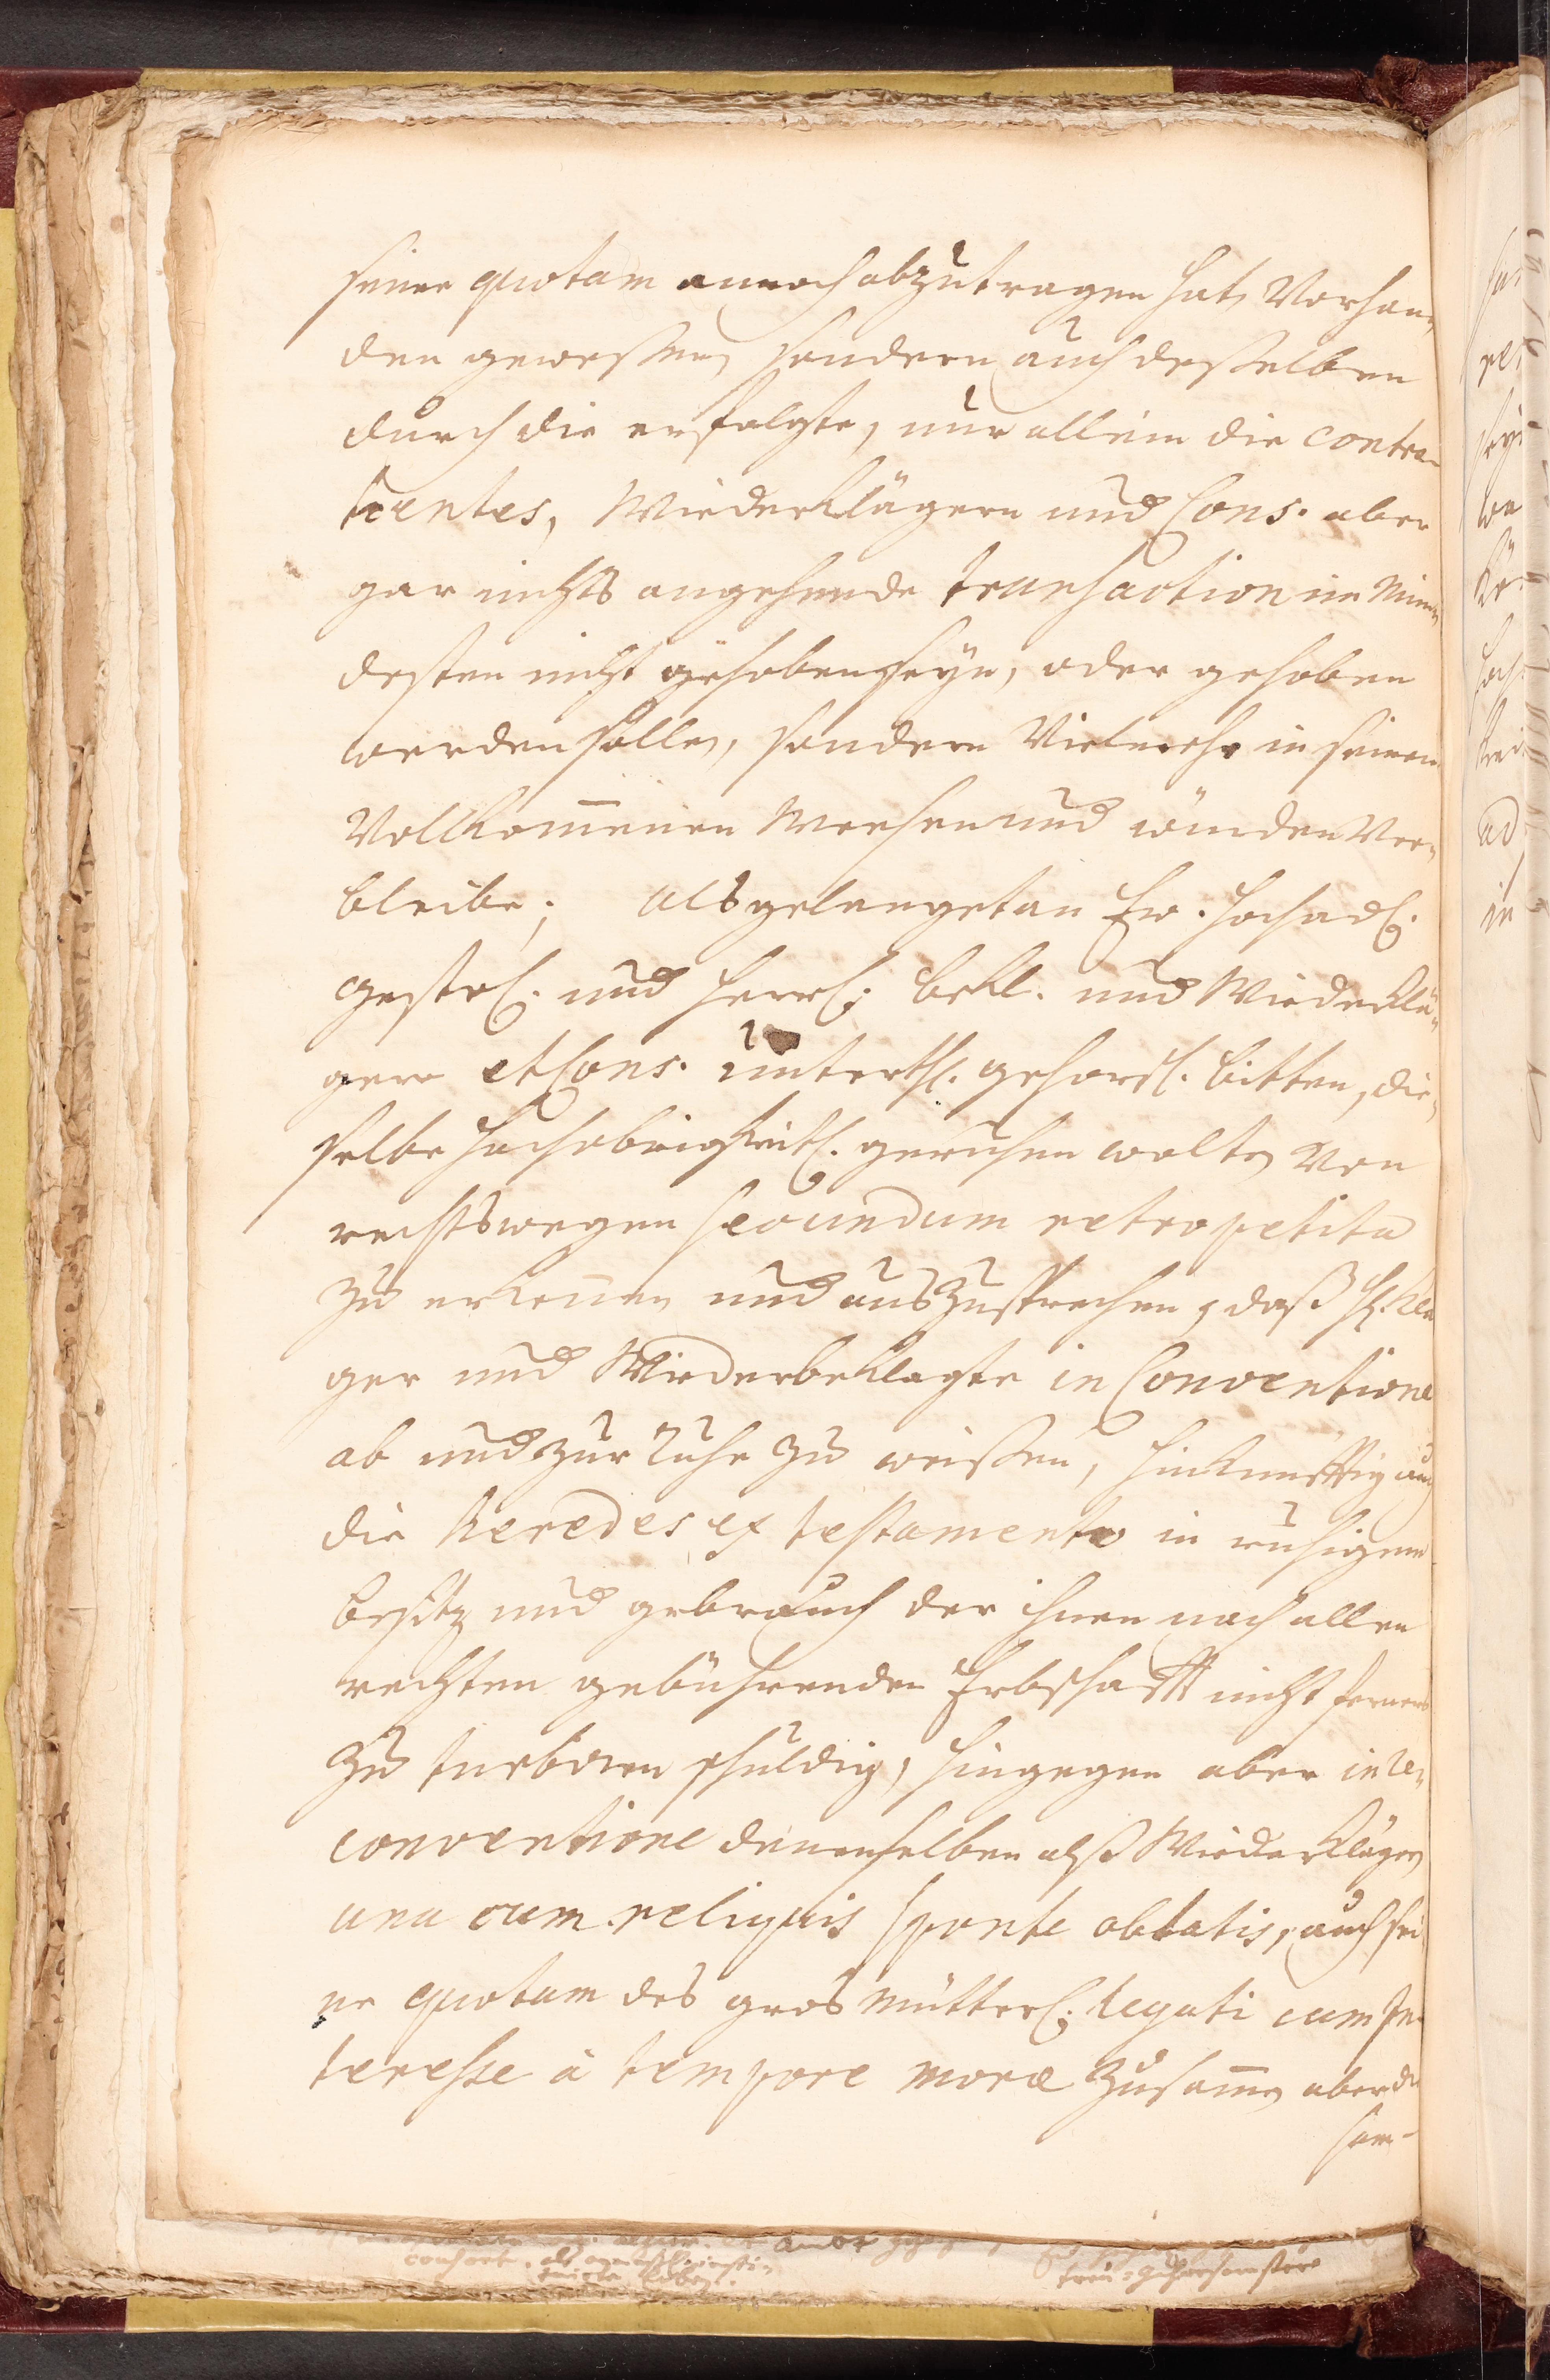 seiner quotam annoch abzutragen hat, Vorhan-
den gewesen, sondern auch desselben
durch die erfolgte, nur allein die contra-
hentes, Wiederklägern und Cons. aber
gar nichts angehende transaction im Min-
desten nicht gehoben seyn, oder gehoben
werden solle, sondern Vielmehr in seinem
Vollkom̄enen Wesen und würden Ver-
bleibe; als gelanget an Ew. Hochadl.
gestrl. und Herrl. bekl. und Wiederklä-
gere et Cons. unterth. gehors. bitten, die-
selbe Hochobrigkeitl. geruhen wolten Von
rechtswegen secundum retropetita
zu erken̄en und auszusprechen, daß H. Klä
ger und Wiederbeklagte in Conventione
ab und zur Ruhe zu weisen, hinkünfftig auch
die heredes ex testamento in ruhigem
besitz und gebrauch der ihnen nach allen
rechten gebührenden Erbschafft nicht ferners
zu turbiren schuldig, hingegen aber in Re-
conventione denenselben alß Wiederkläger
una cum reliquis sponte oblatis, auch sei
ne quotam des gros Mütterl. legati cum In-
teresse à tempore moræ zusam̄en aber